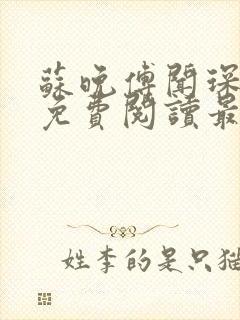 蘇晚傅聞琛
免費閱讀最
姓李的是只猫